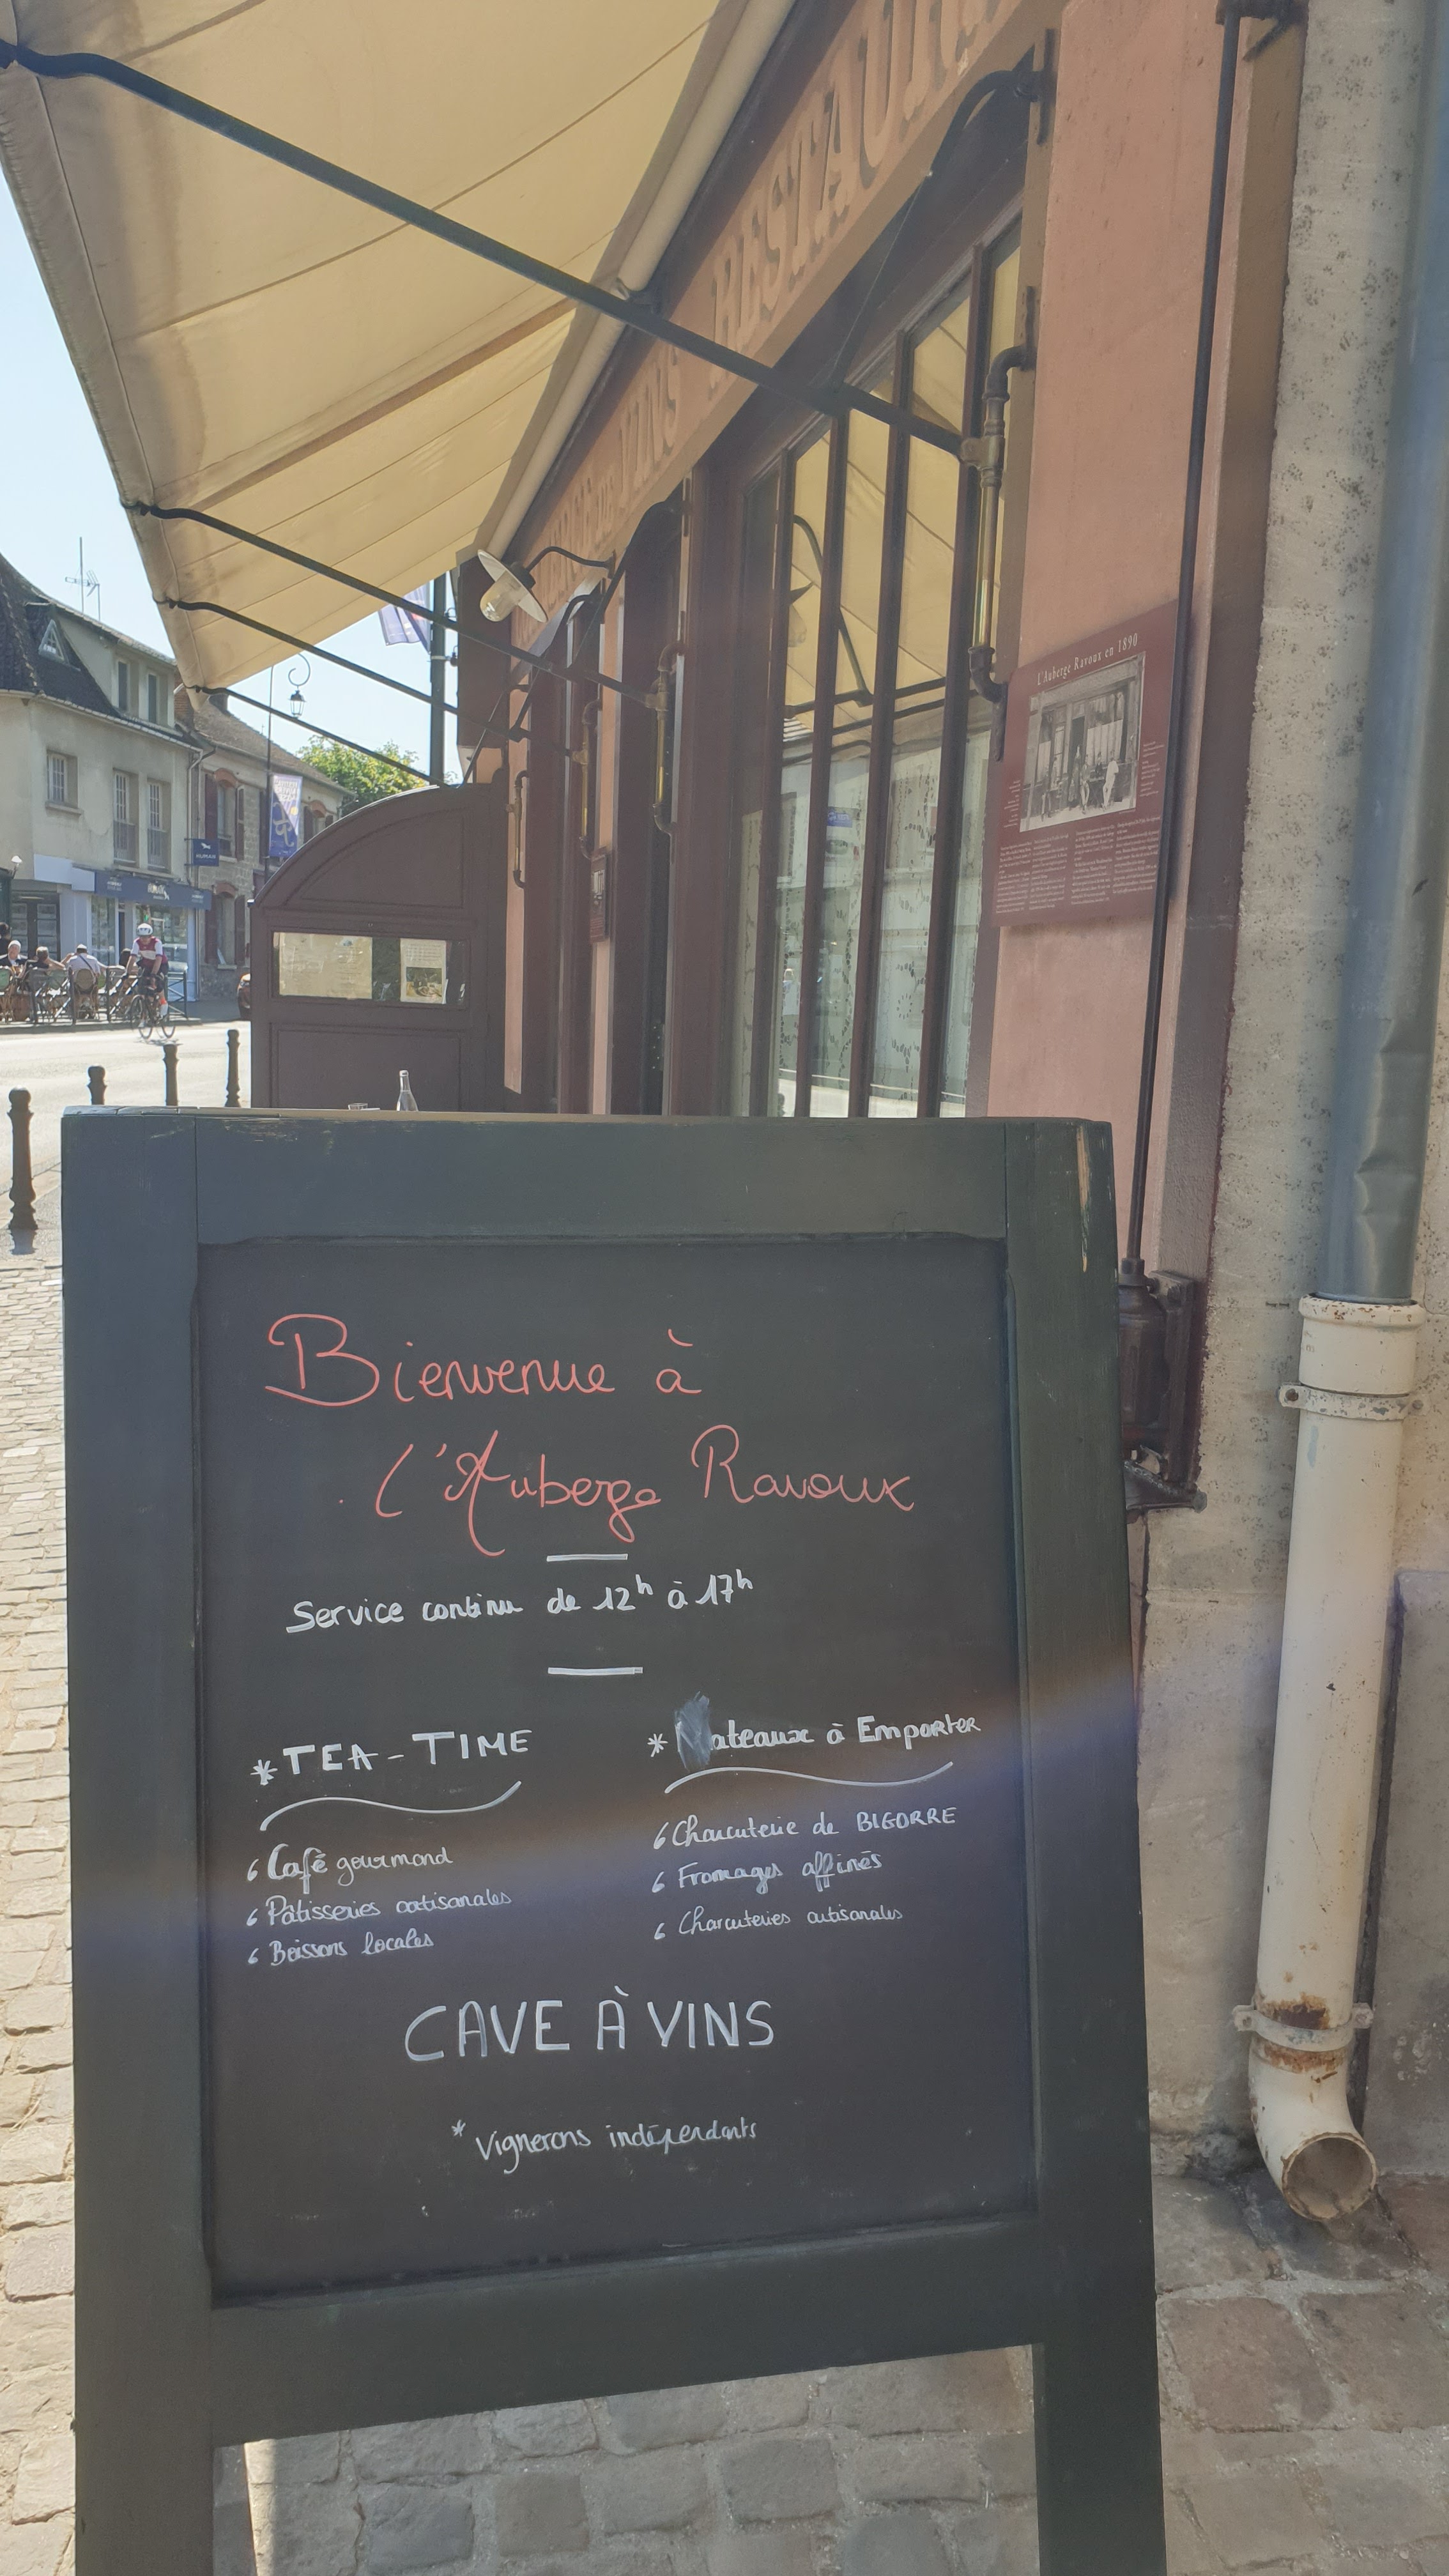 RESTAURA
VINS
L'Auberge Ravoux en 1890
Bienvenue à
l'Auberge Ravoux
Service continu de 12h à 17h
*TEA-TIME
Café gourmond
Pâtisseries artisanales
Boissons locales
* ateaux à Emporter
Charcuterie de BIGORRE
Fromages affinés
Charcuteries artisanales
CAVE À VINS
* Vignerons indépendants